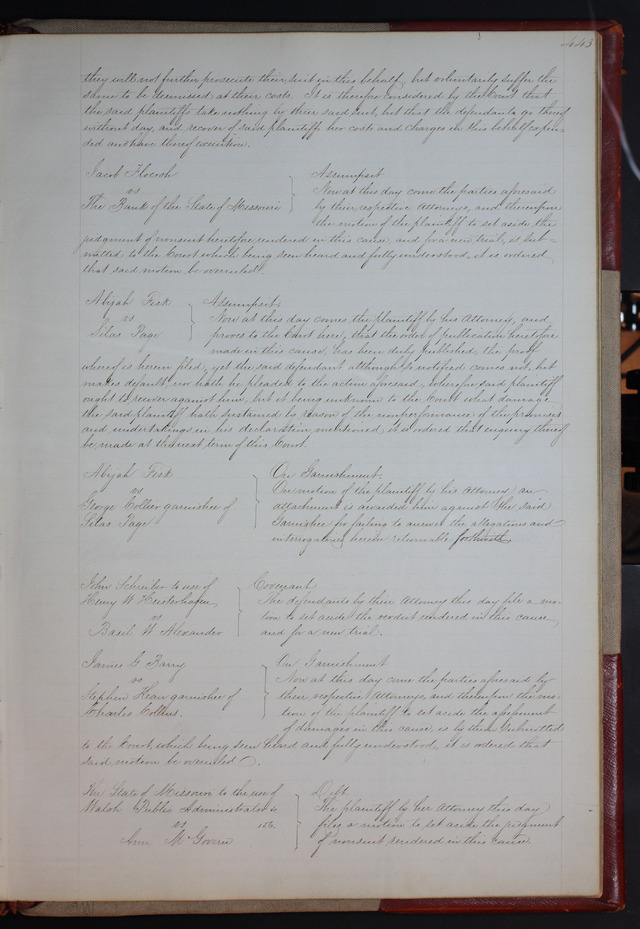 443
they will not further prosecute their suit in this behalf, but voluntarily suffer the
same to be dismissed at their costs. It is therefore considered by the Court that
the said plaintiffs take nothing by their said suit, but that the defendants go thereof
without day, and recover of said plaintiffs her costs and charges in this behalf expen-
ded and have thereof execution.
Jacob
vs
The Bank of the State of Missouri
Assumpsit
Now at this day come the parties aforesaid
by their respective Attorneys, and thereupon
the motion of the plaintiff to set aside the
judgment of nonsuit heretofore rendered in this cause, and for a new trial, is sub-
mitted to the Court which being seen heard and fully understood, it is ordered
that said motion be overruled.
Abijah Fisk
vs
Silas Page
Assumpsit.
Now at this day comes the Plaintiff by his Attorney, and
proves to the Court here, that the order of publication heretofore
made in this cause, has been duly published, the proof
whereof is herein filed, yet the said defendant although so notified comes not, but
makes default nor hath he pleaded to the action aforesaid, wherefore said plaintiff
ought to recover against him, but it being unknown to the Court what damage
the said plaintiff hath sustained by reason of the nonperformance of the promises
and undertakings in his declaration mentioned, it is ordered that enquiry thereof
be made at the next term of this Court.
Abijah Fisk
vs
George Collier garnishee of
Silas Page
On Garnishment.
On motion of the plaintiff by his Attorney an
attachment is awarded him against the said
Garnishee for failing to answer the allegations and
interrogatories herein returnable forthwith
John Schreiber to use of
Henry W Heisterhagen
vs
Basil W Alexander
Covenant
The defendants by their Attorney this day file a mo-
tion to set aside the verdict rendered in this cause
and for a new trial.
James G Barry
vs
Stephen Hean garnishee of
Charles Collins.
On Garnishment
Now at this day come the parties aforesaid by
their respective Attorneys, and thereupon the mo-
tion of the plaintiff to set aside the assessment
of damages in this cause is by them submitted
to the Court, which being seen heard and fully understood, it is ordered that
said motion be overruled.
The State of Missouri to the use of
Walsh Public Administrator &c
vs 156.
Ann McGovern
Debt
The plaintiff by her Attorney this day
files a motion to set aside the judgment
of nonsuit rendered in this cause.